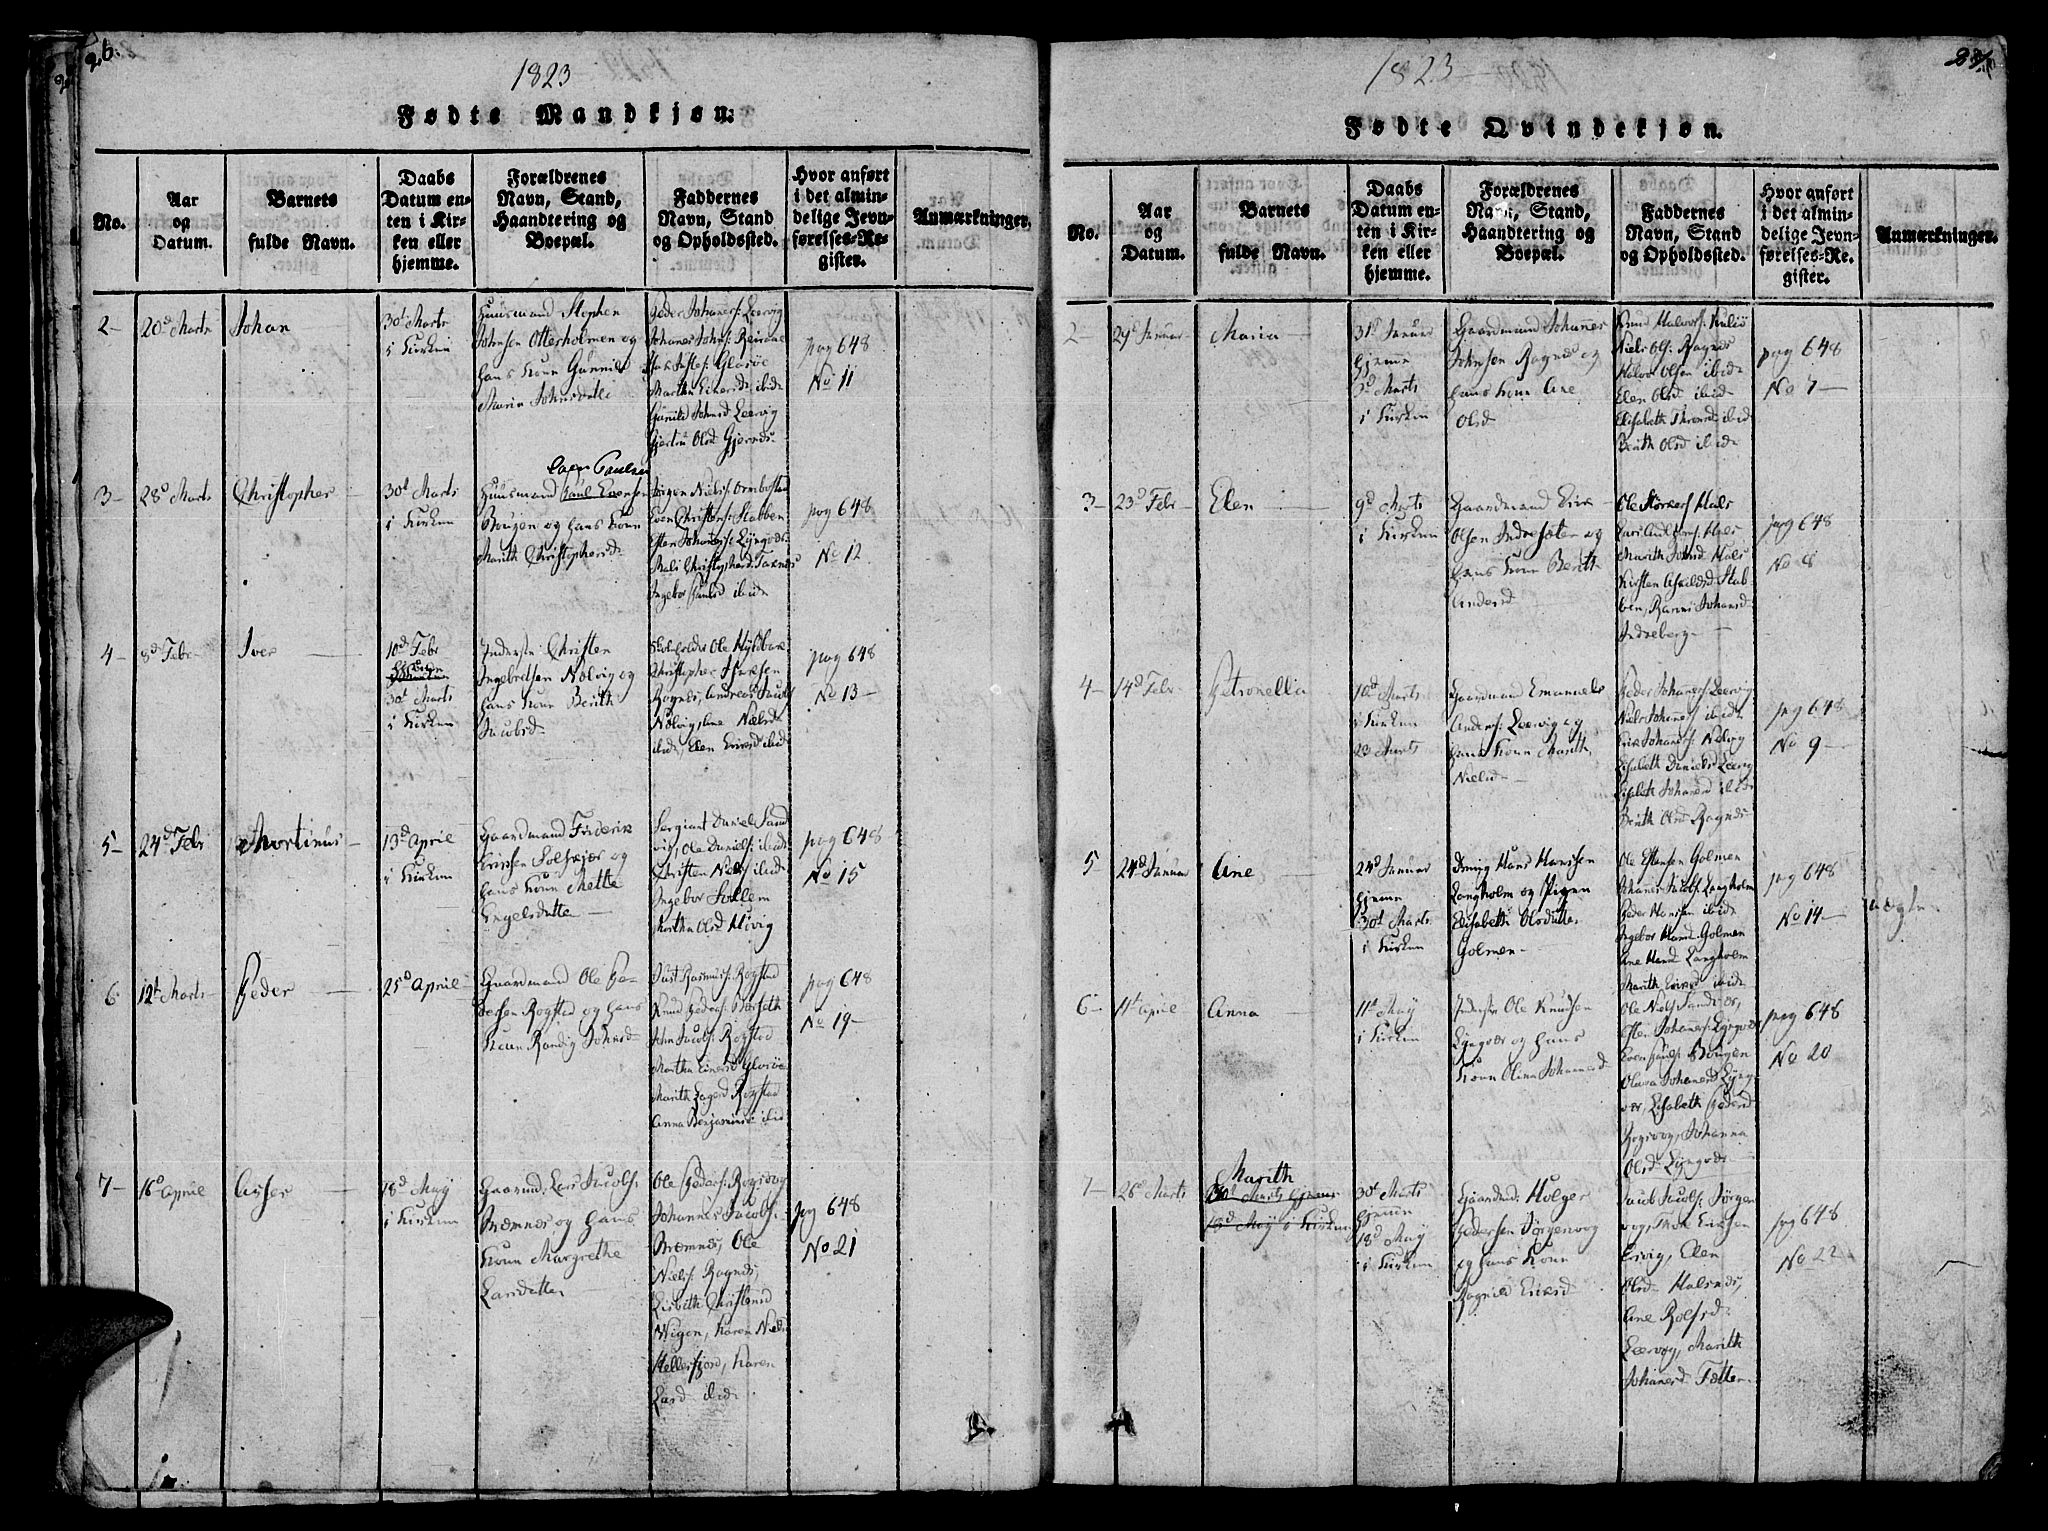 26.
1823
Fødte Mandkjøn.
No.
Aar
og
Datum.
Barnets
fulde Navn.
Daabs
Datum en-
ten i Kir-
ken eller
hjemme.
Forældrenes
Navn, Stand,
Haandtering og
Boepæl.
Faddernes
Navn, Stand
og Opholdssted.
Hvor anført
i det almin-
delige Jevn-
førelses-Re-
gister.
Anmærkninger.
2-
20d Marts
Johan
30d Marts
i Kirken
Huusmand Stephen
Johnsen Otterholmen og
hans Kone Gunnild
Maria Johnsdatte
Peder Johanes: Leervig
Johanes Johns:
Glasøe
Marthe Einersd ibid
Gunild Johnsd Leervig
Olsd Gjernds
pag 648
No 11
3-
28d Marts
Christopher
30d Marts
i Kirken
Paulsen
Huusmand
Bougen og hans Kone
Marith Christophersd
Jørgen Niels:
Even Christens: Stabben
Esten Johanes:
Mali Christophersd
Ingebor Paulsd ibid
pag 648
No 12
4-
8d Febr
Iver
10d Febr
30d Marts
i Kirken
Inderste Christen
Ingebretsen Nolvig og
hans Kone Berith
Jacobsd
Skoleholder Ole
Christopher
Rognes, Andreas Jacobs
Nolvig, Ane Nielsd
ibid, Elen Ericsd ibid
pag 648
No 13-
5-
24d Febr
Mortinus
13d April
i Kirken
Gaardmand Friderik
Ericsen Solskjær og
hans Kone Mette
Engelsdatte
Sergiant Daniel Sand
vig, Ole Daniels: ibid
Christen Niels ibid
Ingebor
Martha Olsd
pag 648
No 15
6-
12t Marts
Peder
25d April
Gaardmand Ole Pe-
dersen Rogstad og hans
Kone Randig Johnsd
Just Rasmus: Rogstad
Knud Peders:
John Jacobs: Rogstad
Martha Einersd Glasøe
Marith Rogstad
Anna Benjaminsd ibid
pag 648
No 19-
7-
16d April
Asser
18d May
i Kirken
Gaarmd. Lars Jacobs:
Bremnes og hans
Kone Margrethe
Larsdatter
Ole Peders: Rogsvog
Johannes Jacobs:
Bremnes, Ole
Niels: Rognes,
Lisbeth Christensd
Wigen, Karen Nielsd
Hellesfjord, Karen
Larsd ibid
pag 648
No 21
1823
Fødte Qvindekjøn.
No.
Aar
og
Datum.
Barnets
fulde Navn.
Daabs
Datum en-
ten i Kir-
ken eller
hjemme.
Forældrenes
Navn, Stand,
Haandtering og
Boepæl.
Faddernes
Navn, Stand
og Opholdssted.
Hvor anført
i det almin-
delige Jevn-
førelses-Re-
gister.
Anmærkninger.
2-
29d Januar
Maria
31d Januar
hjeme
3d Marts
i Kirken
Gaardmand Johannes
Johnsen Rognes og
hans Kone Ane
Olsd
Knud Halvors:
Niels Ols: Rognes
Halvor Olsen ibid
Elen Olsd ibid
Elisabeth ibid
Berith Olsd ibid
pag 648
No 7-
3-
23d Febr
Elen
9d Marts
i Kirken
Gaardmand Erik
Olsen Indresæter og
hans Kone Berith
Andersd
Ole Hals
Hals
Marith Johnsd Hals
Kirsten Stab-
ben, Johansd
Indreberg
pag 648
No 8
4-
14d Febr
Petronella
10d Marts
i Kirken
23 Marts
Gaardmand Emanuels
Anders: Leervig og
hans Kone Marith
Nielsd
Peder Johanes: Leervig
Niels Johanes ibid
Erik Johans: Nolvig
Elisabeth Danielsd Leervig
Elisabeth Johansd ibid
Berith Olsd Rognes
pag 648
No 9-
5-
24d Januar
Ane
24d Januar
hjeme
30t Marts
i Kirken
Dreng Hans Hanssen
Langholm og Pigen
Elisabeth Olsdatter
Golmen-
Ole Estensen Golmen
Johanes Jacobs: Langholm
Peder Hansen ibid
Ingebor Hansd Golmen
Ane Hansd Langholm
Marith Ericsd ibid
pag 648
No 14-
uægte
6-
11t April
Anna
11d May
i Kirken
Inderste Ole Knudsen
Lyngvær og hans
Kone Olina Johannesd
Ole Niels
Esten Johanes: Lyngvær
Even Pauls: Bougen
Olava Johanesd Lyng-
vær, Lisabeth Pedersd
Rogsvog, Johanna
Olsd Lyngvær
pag 648
No 20
7-
26d Marts
Marith
30d Marts hjeme
18d May i Kirken
30t Marts
hjeme
18d May
i Kirken
Gaardmd: Holger
Pedersen Jørgenvog
og hans Kone
Ragnild Ericsd
Jacob Jacobs: Jørgen
vog, Ericsen
Ervig, Elen
Olsd Halsnes,
Ane Rolfsd
Leervog, Marith
Johanesd Tøtten
pag 648
No 22